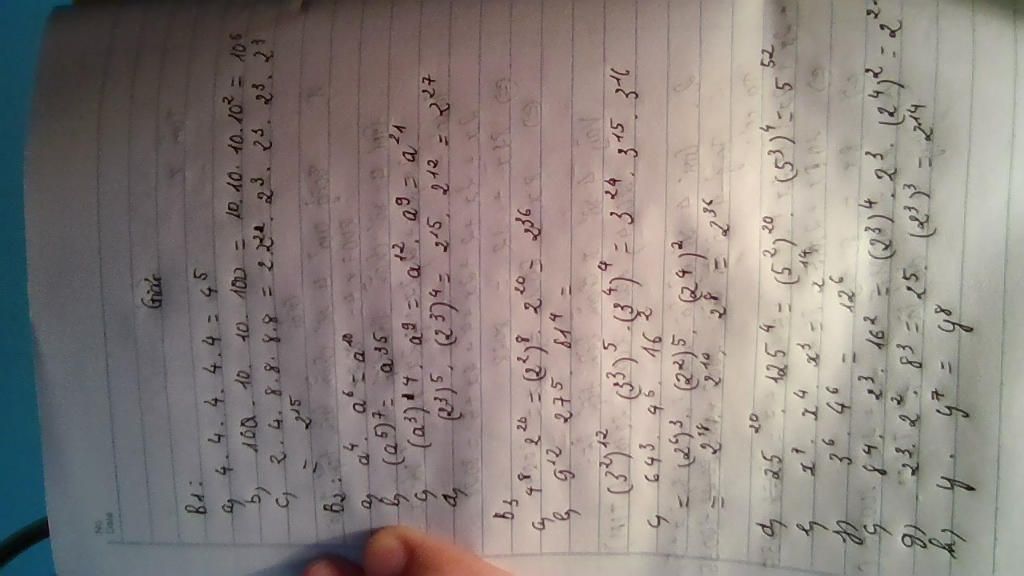 Giải
B1:
a, 4 . 4 . 4 . 4 . 4 = 4⁵
b, 100 . 10 . 10 . 100 = 10 . 10 . 10 . 10² = 10⁶
c, 2 . 4 . 8 . 8 . 8.8 = 2.2² . 2³ . 2³ . 2³ . 2³
= 2¹⁵
B2:
a, a⁴ . a⁶ = a¹⁰
b, (a⁵)⁷ = a³⁵
c, (a³)⁴ . a⁹ = a¹² . a⁹ = a²¹
d, (2³)⁵ . (2³)⁴ = 2¹⁵ . 2¹² = 2²⁷
B3
a, 4⁸ . 2²⁰ = (2²)⁸ . 2²⁰ = 2³⁶
b, 9¹² . 27⁵ . 81⁴ =
(3²)¹² . (3³)⁵ . (3⁴)⁴ = 3²⁴ . 3¹⁵ . 3¹⁶
c, 64³ . 4⁵ . 16²
= (2⁶)³ . (2²)⁵ . (2⁴)²
= 2¹⁸ . 2¹⁰ . 2⁸ = 2³⁶
d, 25²⁰ . 125⁴ = (5²)²⁰ . (5³)⁴ = 5⁵²
e, x⁷ . x⁴ . x³ = x¹⁴
f, 3⁶ . 4⁶ = 12⁶
8⁴ . 2³ . 16² = (2³)⁴ . 2³ . (2⁴)² = 2
g, 2³ . 2² . 8³ = 2⁵ . (2³)³ = 2¹⁴
h, y . y⁷ = y⁸